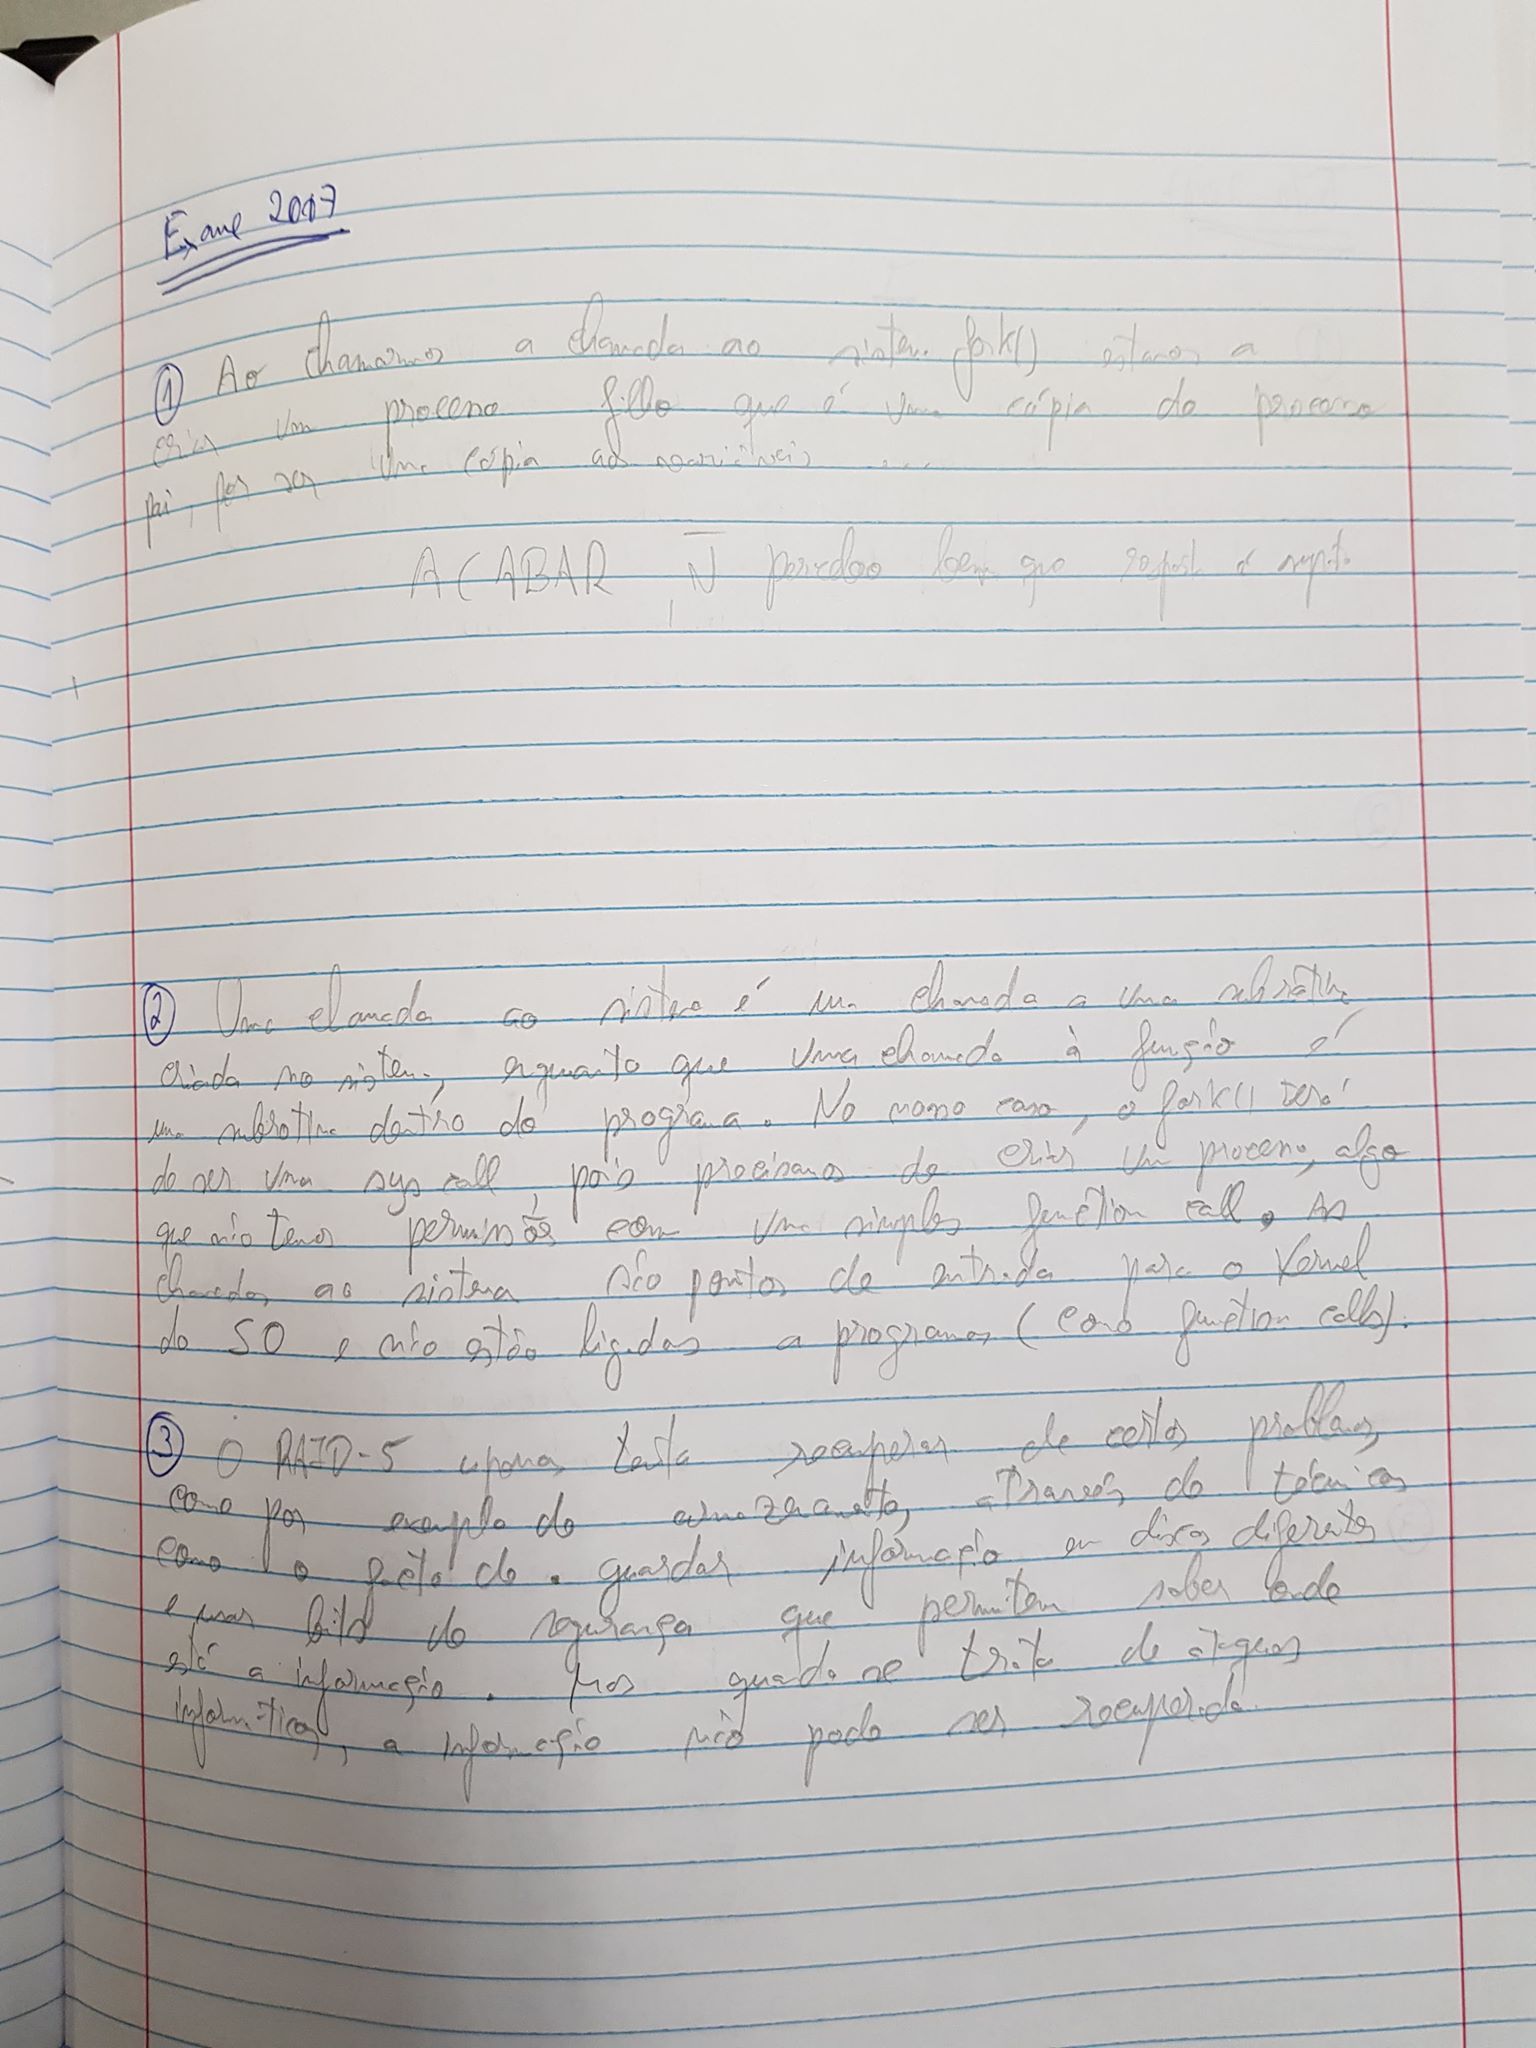 Exame 2017
① Ao chamarmos a chamada ao sistema fork() estamos a
criar um processo filho que é uma cópia do processo
pai, por ser uma cópia as variáveis ....
ACABAR, Ñ percebo bem que
② Uma chamada ao sistema é uma chamada a uma subrotina
criada no sistema, enquanto que uma chamada à função é
uma subrotina dentro do programa. No nosso caso, o fork() terá
de ser uma sys call, pois precisamos de criar um processo, algo
que não temos permissões com uma simples function call. As
chamadas ao sistema são pontos de entrada para o Kernel
do SO e não estão ligadas a programas (como function calls).
③ O RAID-5 apenas tenta recuperar de certos problemas,
como por exemplo de armazenamento, através de técnicas
como o facto de guardar informação em discos diferentes
e usar bits de segurança que permitem saber onde
está a informação. Mas quando se trata de ataques
informáticos, a informação não pode ser recuperada.